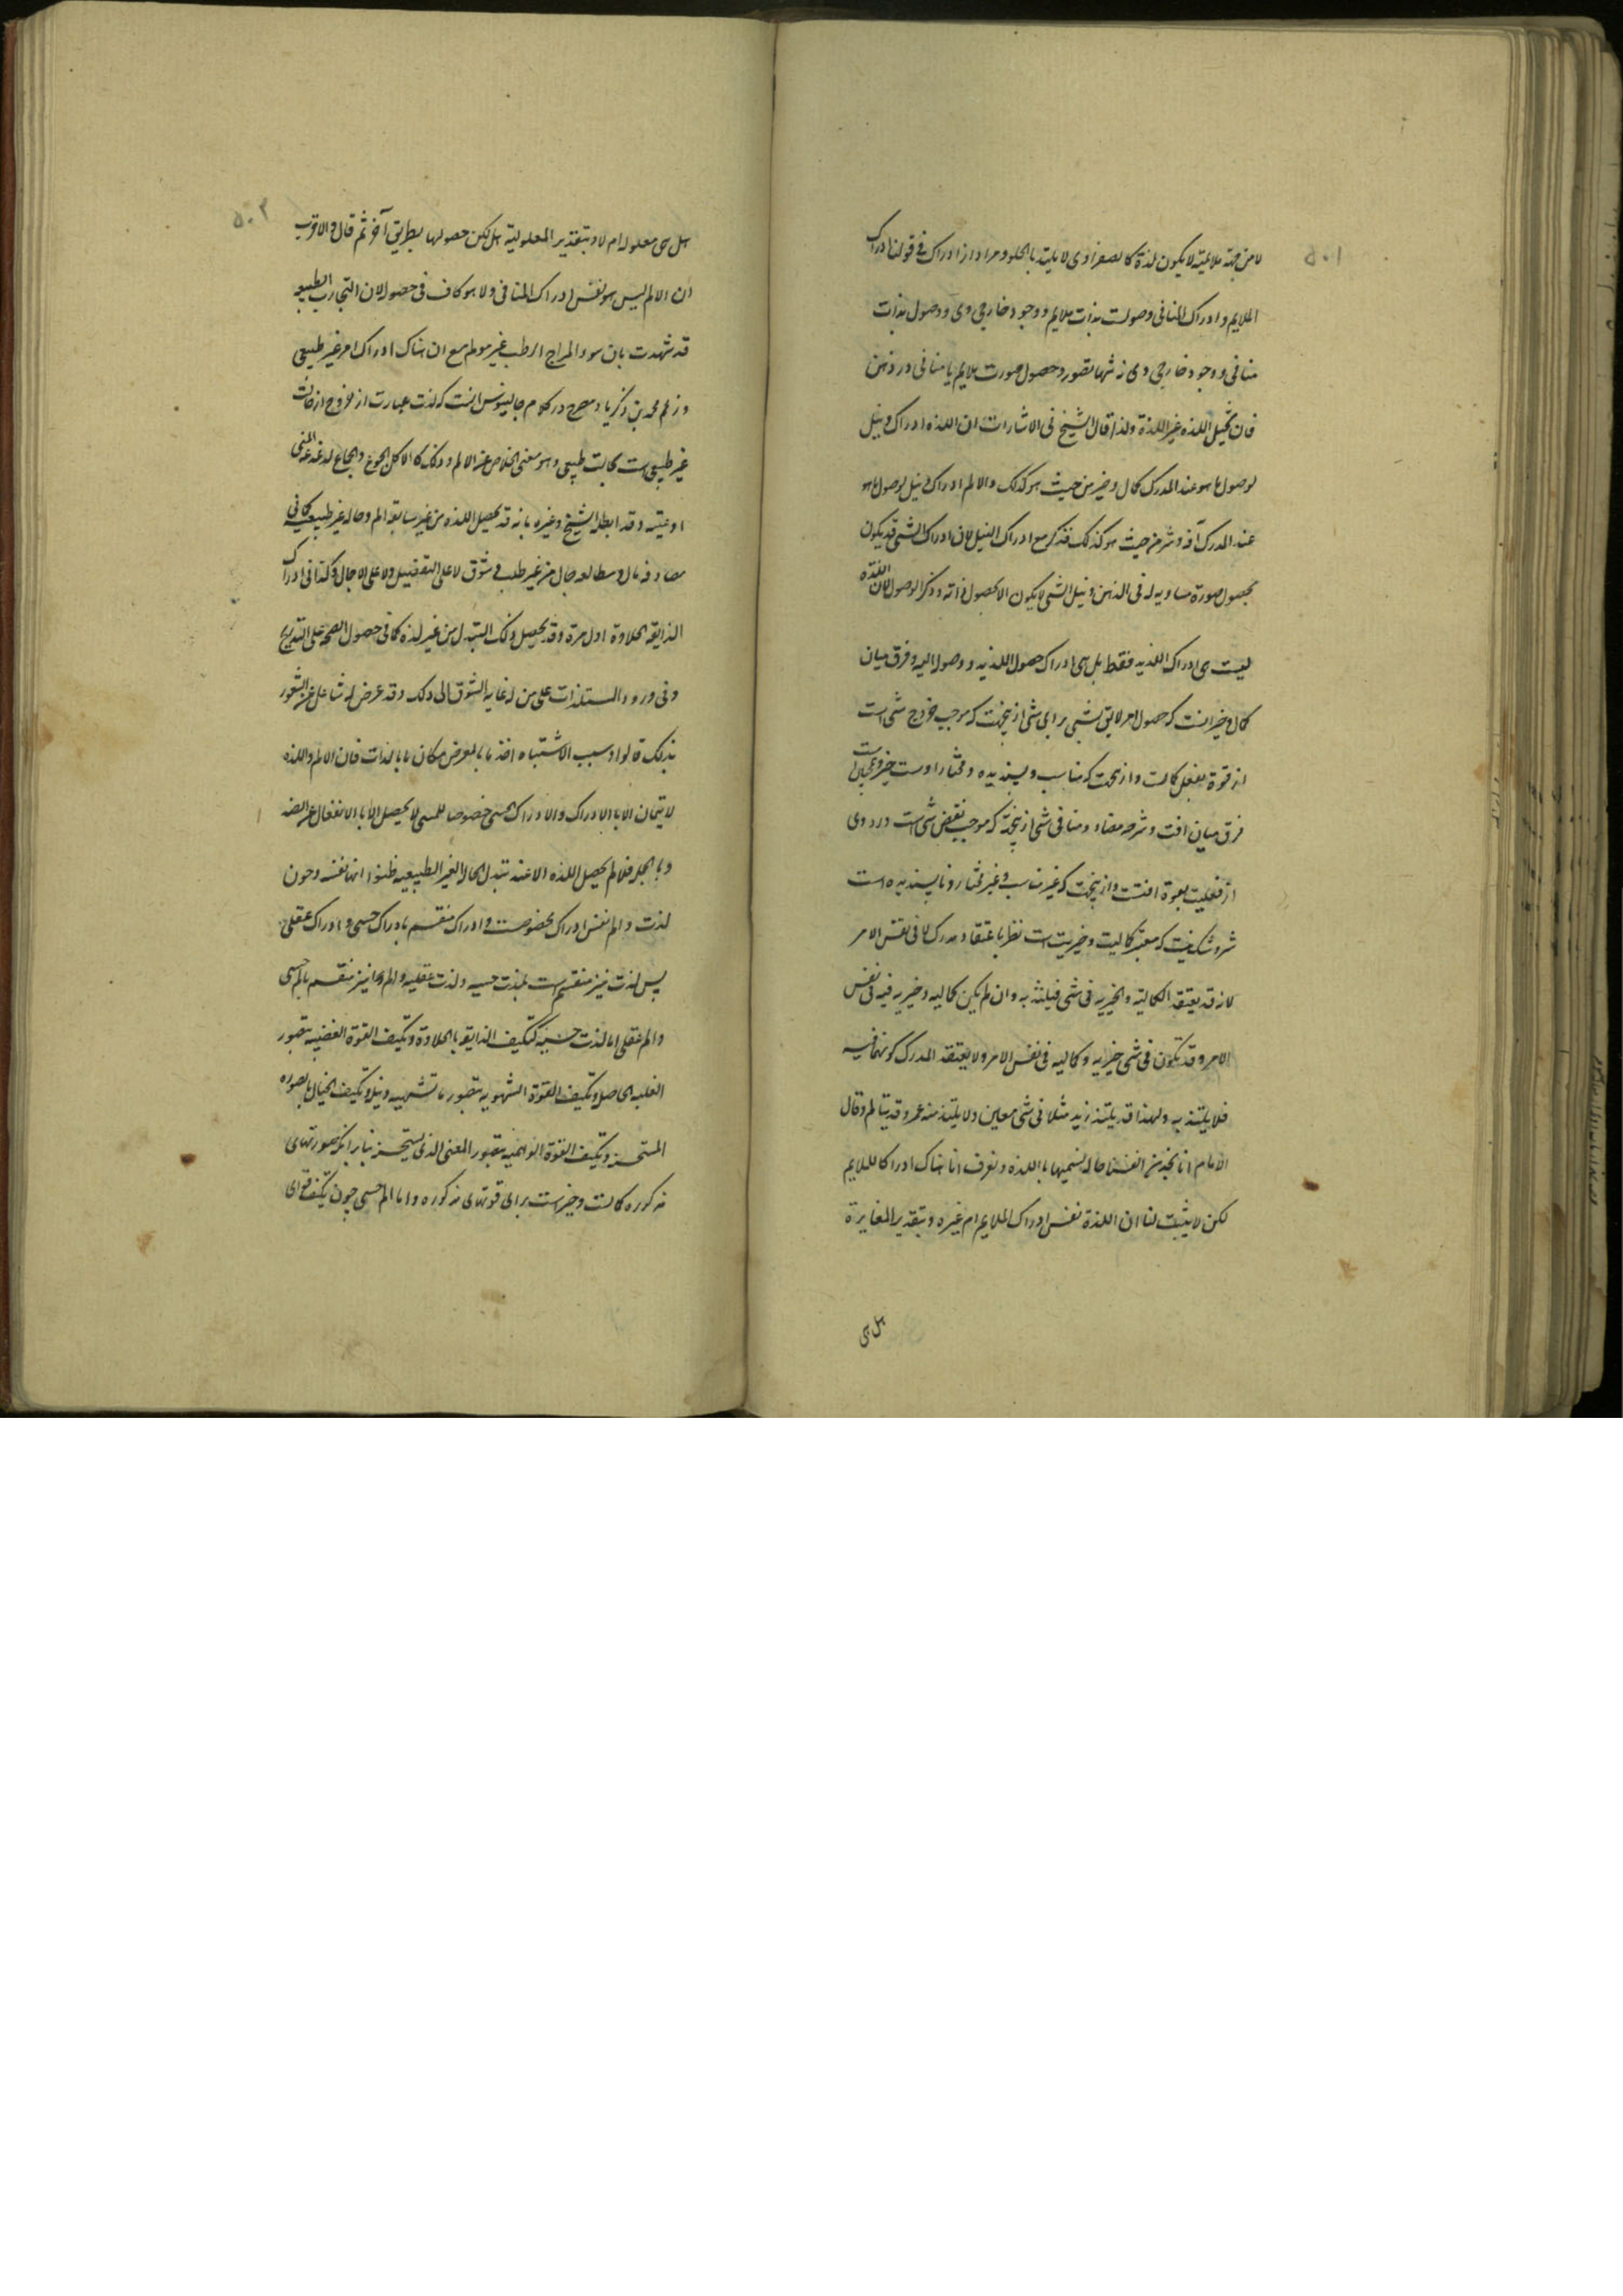 ۵۰۱
لا من جهة ملائمیته لا یکون لذة کالصفراوی لا یلتذ بالحلو و مراد از ادراک فی قولنا ادراک
الملایم و ادراک المنافی وصولست بذات ملایم و وجود خارجی وی و وصول بذات
منافی و وجود خارجی وی نه تنها تصور و حصول صورت ملایم یا منافی در ذهن
فان تخیل اللذه غیر اللذة ولذا قال الشیخ فی الاشارات ان اللذه ادراک و نیل
لوصول ما هو عند المدرک کمال و خیر من حیث هو کذلک والالم ادراک و نیل لوصول ما هو
عند المدرک آفه و شر من حیث هو کذلک فذکر مع ادراک النیل لان ادراک الشی قد یکون
بحصول صورة مساویه له فی الذهن و نیل الشی لا یکون الا بحصول ذاته و ذکر الوصول لان اللذه
لیست هی ادراک اللذیذ فقط بل هی ادراک حصول اللذیذ و وصول الیه و فرق میان
کمال و خیر آنست که حصول امر لایق بشیی برای شی ازینجهت که موجب خروج شی است
از قوة بفعل کمالست و ازینجهت که مناسب و پسندیده و مختار اوست خیر و همچنین است
فرق میان افت و شر چه مضاد و منافی شی ازینجهة که موجب نقض شی است در وی
از فعلیت بقوة افتست و ازینجهت که غیر مناسب و غیر مختار و ناپسندیده است
شر و شک نیست که معتبر کمالیت و خیریت است نظر باعتقاد مدرک لا فی نفس الامر
لانه قد یعتقد الکمالیة والخیریه فی شی فیلتذ به وان لم یکن کمالیه و خیریه فیه فی نفس
الامر و قد تکون فی شی خیریه و کمالیه فی نفس الامر ولا یعتقد المدرک کونهما فیه
فلا یلتذ به ولهذا قد یلتذ زید مثلا فی شی معین ولا یلتذ منه عمرو قد یتالم و قال
الامام انا نجد من انفسنا حاله نسمیها باللذه و نعرف انا هناک ادراکا للملایم
لکن لا یثبت لنا ان اللذة نفس ادراک الملایم ام غیره و بتقدیر المغایرة
هل هی
۵۰۲
هل هی معلوله ام لا و بتقدیر المعلولیة هل یمکن حصولها بطریق آخر ثم قال والاقرب
ان الالم لیس هو نفس ادراک المنافی ولا هو کاف فی حصوله لان التجارب الطبیه
قد شهدت بان سوء المزاج الرطب غیر مولم مع ان هناک ادراک امر غیر طبیعی
و زعم محمد بن زکریا و مصرح در کلام جالینوس اینست که لذت عبارت از خروج از حالت
غیر طبیعی است بحالت طبیعی و هو معنی الخلاص عن الالم و ذلک کالاکل للجوع والجماع لدغدغه المنی
اوعیته و قد ابطله الشیخ و غیره بانه قد یحصل اللذه من غیر سابقه الم و حاله غیر طبیعیه کما فی
مصادفه مال و مطالعه جمال من غیر طلب و شوق لا علی التفصیل ولا علی الاجمال و کذا فی ادراک
الذایقه الحلاوة اول مرة و قد یحصل ذلک التبدل من غیر لذه کما فی حصول الصحه علی التدریج
و فی ورود المستلذات علی من له غایه الشوق الی ذلک و قد عرض له شاغل عن الشعور
بذلک قالوا و سبب الاشتباه اخذ ما بالعرض مکان ما بالذات فان الالم واللذه
لا یتمان الا بالادراک والادراک الحسی خصوصا اللمسی لا یحصل الا بالانفعال عن الضد
و بالجمله فلما لم یحصل اللذه الا عند تبدل الحال الغیر الطبیعیه ظنوا انها نفسه و چون
لذت و الم نفس ادراک بخصوصست و ادراک منقسم بادراک حسی و ادراک عقلی
پس لذت نیز منقسم است بلذت حسیه و لذت عقلیه و الم را نیز منقسم بالم حسی
و الم عقلی اما لذت حسیه کتکیف الذایقه بالحلاوة و تکیف القوة الغضبیه بتصور
الغلبه الحاصل و تکیف القوة الشهویه بتصور ما تشتهیه و نیل و تکیف الخیال بالصوره
المستحسنه و تکیف القوة الواهمیه بتصور المعنی الذی یستحسنه بنابر انکه صورتهای
مذکوره کمالست و خیر است برای قوتهای مذکوره و اما الم حسی چون تکیف قوای